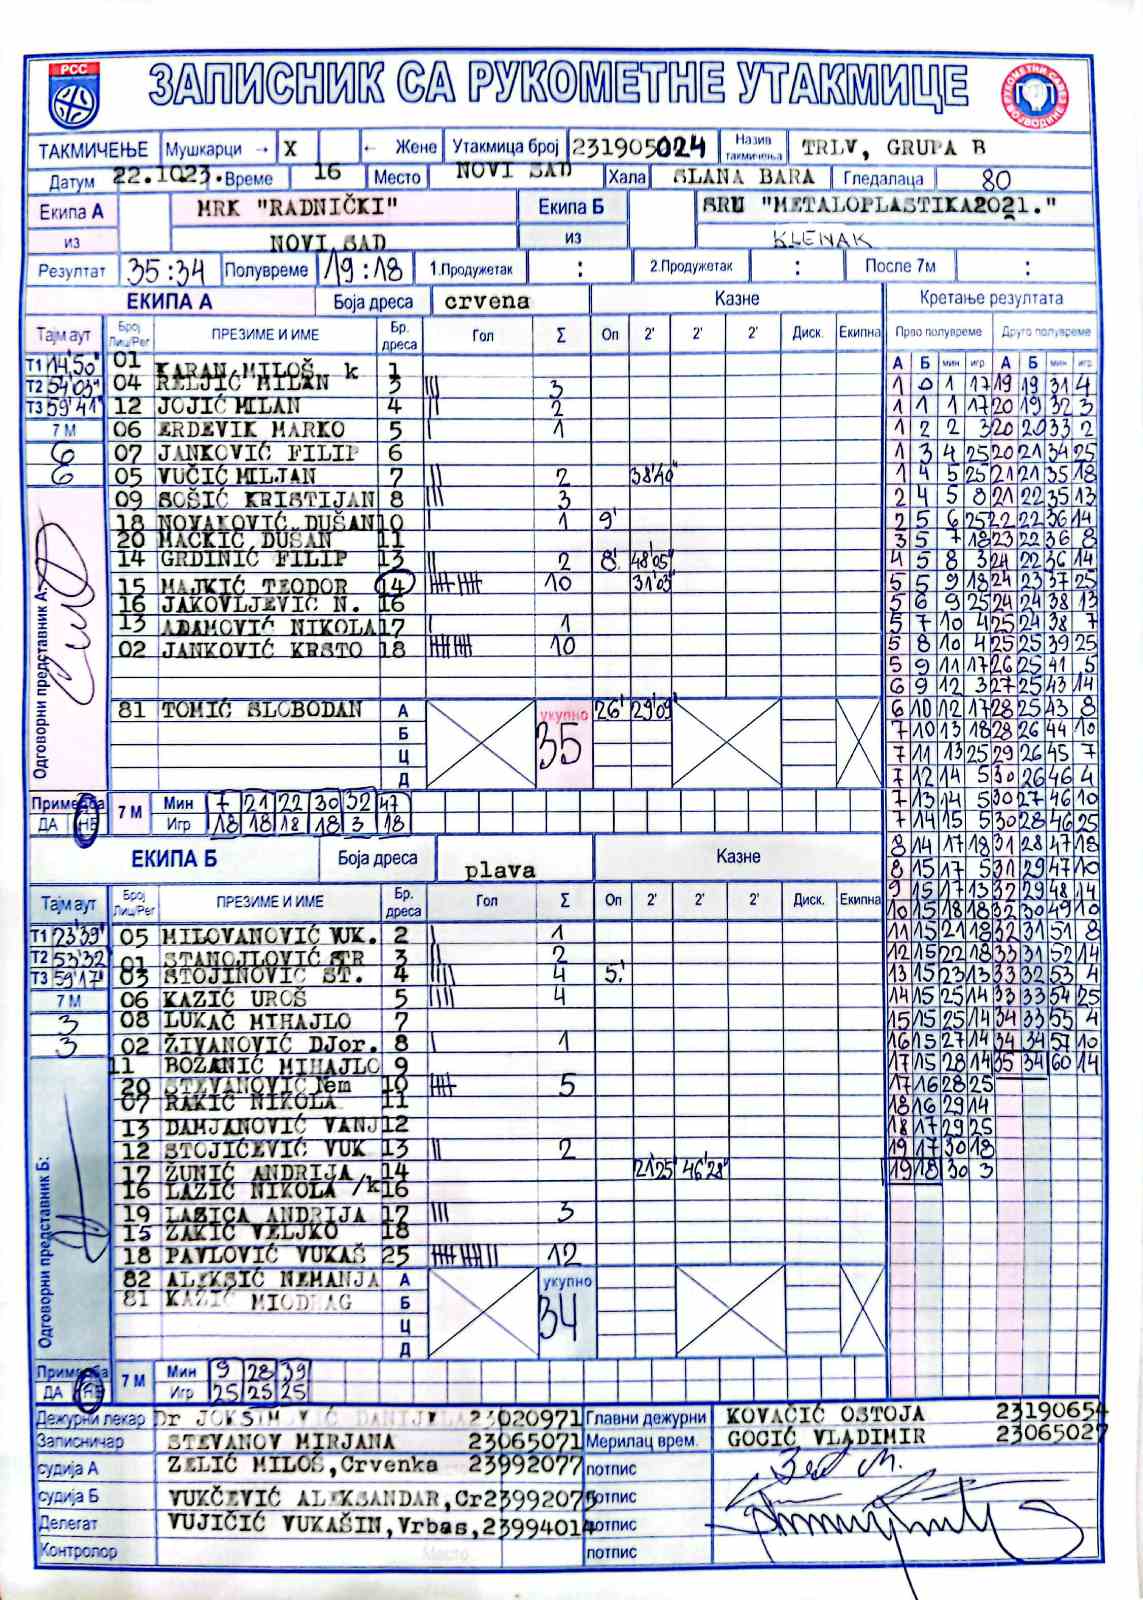 РСС
ЗАПИСНИК СА РУКОМЕТНЕ УТАКМИЦЕ
ТАКМИЧЕЊЕ Мушкарци → X ← Жене Утакмица број 231905024 Назив такмичења TRLV, GRUPA B
Датум 22.1023. Време 16 Место NOVI SAD Хала SLANA BARA Гледалаца 80
Екипа А MRK "RADNIČKI" Екипа Б SRU "METALOPLASTIKA2021."
из NOVI SAD из KLENAK
Резултат 35:34 Полувреме 19:18 1.Продужетак : 2.Продужетак : После 7м :
ЕКИПА А Боја дреса crvena Казне Кретање резултата
Тајм аут Број Лиц/Рег ПРЕЗИМЕ И ИМЕ Бр. дреса Гол Σ Оп 2' 2' 2' Диск. Екипна Прво полувреме Друго полувреме
А Б мин игр А Б мин игр
T1 14'50" 01 KARAN MILOŠ k 1
T2 54'03" 04 RELJIĆ MILAN 3 ||| 3 1 0 1 17 19 19 31 4
T3 59'41" 12 JOJIĆ MILAN 4 || 2 1 1 1 17 20 19 32 3
7 М 06 ERDEVIK MARKO 5 | 1 1 2 2 3 20 20 33 2
6 07 JANKOVIĆ FILIP 6 1 3 4 25 20 21 34 25
6 05 VUČIĆ MILJAN 7 || 2 38'40" 1 4 5 25 21 21 35 18
09 SOŠIĆ KRISTIJAN 8 ||| 3 2 4 5 8 21 22 35 13
18 NOVAKOVIĆ DUŠAN 10 | 1 9' 2 5 6 25 22 22 36 14
20 MAČKIĆ DUŠAN 11 3 5 7 18 23 22 36 8
14 GRDINIĆ FILIP 13 || 2 8' 48'05" 4 5 8 3 24 22 36 14
15 MAJKIĆ TEODOR 14 10 31'03" 5 5 9 18 24 23 37 25
16 JAKOVLJEVIĆ N. 16 5 6 9 25 24 24 38 13
13 ADAMOVIĆ NIKOLA 17 | 1 5 7 10 4 25 24 38 7
02 JANKOVIĆ KRSTO 18 10 5 8 10 4 25 25 39 25
5 9 11 17 26 25 41 5
6 9 12 3 27 25 43 14
81 TOMIĆ SLOBODAN А укупно 35 26' 29'09" 6 10 12 17 28 25 43 8
Б 7 10 13 18 28 26 44 10
Ц 7 11 13 25 29 26 45 7
Д 7 12 14 5 30 26 46 4
Одговорни представник А:
Примедба 7 М Мин 7 21 22 30 32 47 7 13 14 5 30 27 46 10
ДА НЕ Игр 18 18 18 18 3 18 7 14 15 5 30 28 46 25
ЕКИПА Б Боја дреса plava Казне 8 14 17 18 31 28 47 18
8 15 17 5 31 29 47 10
Тајм аут Број Лиц/Рег ПРЕЗИМЕ И ИМЕ Бр. дреса Гол Σ Оп 2' 2' 2' Диск. Екипна 9 15 17 13 32 29 48 14
10 15 18 18 32 30 49 10
T1 23'39" 05 MILOVANOVIĆ VUK. 2 | 1 11 15 21 18 32 31 51 8
T2 53'32" 01 STANOJLOVIĆ STR 3 2 12 15 22 18 33 31 52 14
T3 59'17" 03 STOJINOVIC ST. 4 |||| 4 5' 13 15 23 13 33 32 53 4
7 М 06 KAZIĆ UROŠ 5 |||| 4 14 15 25 14 33 33 54 25
3 08 LUKAČ MIHAJLO 7 15 15 25 14 34 33 55 4
3 02 ŽIVANOVIĆ DJor. 8 | 1 16 15 27 14 34 34 57 10
11 BOŽANIĆ MIHAJLO 9 17 15 28 14 35 34 60 14
20 STEVANOVIĆ Nem 10 5 17 16 28 25
07 RAKIĆ NIKOLA 11 18 16 29 14
13 DAMJANOVIĆ VANJ 12 18 17 29 25
12 STOJIĆEVIĆ VUK 13 || 2 19 17 30 18
17 ŽUNIĆ ANDRIJA 14 21'25" 46'28" 19 18 30 3
16 LAZIĆ NIKOLA /k 16
19 LASICA ANDRIJA 17 ||| 3
15 ZAKIĆ VELJKO 18
18 PAVLOVIĆ VUKAŠ 25 12
82 ALEKSIĆ NEMANJA А укупно 34
81 KAZIĆ MIODRAG Б
Ц
Д
Одговорни представник Б:
Примедба 7 М Мин 9 28 39
ДА НЕ Игр 25 25 25
Дежурни лекар Dr JOKSIMOVIĆ DANIJELA 23020971 Главни дежурни KOVAČIĆ OSTOJA 23190654
Записничар STEVANOV MIRJANA 23065071 Мерилац врем. GOCIĆ VLADIMIR 23065027
судија А ZELIĆ MILOŠ,Crvenka 23992077 потпис
судија Б VUKČEVIĆ ALEKSANDAR,Cr23992075 потпис
Делегат VUJIČIĆ VUKAŠIN,Vrbas,23994014 потпис
Контролор Место потпис